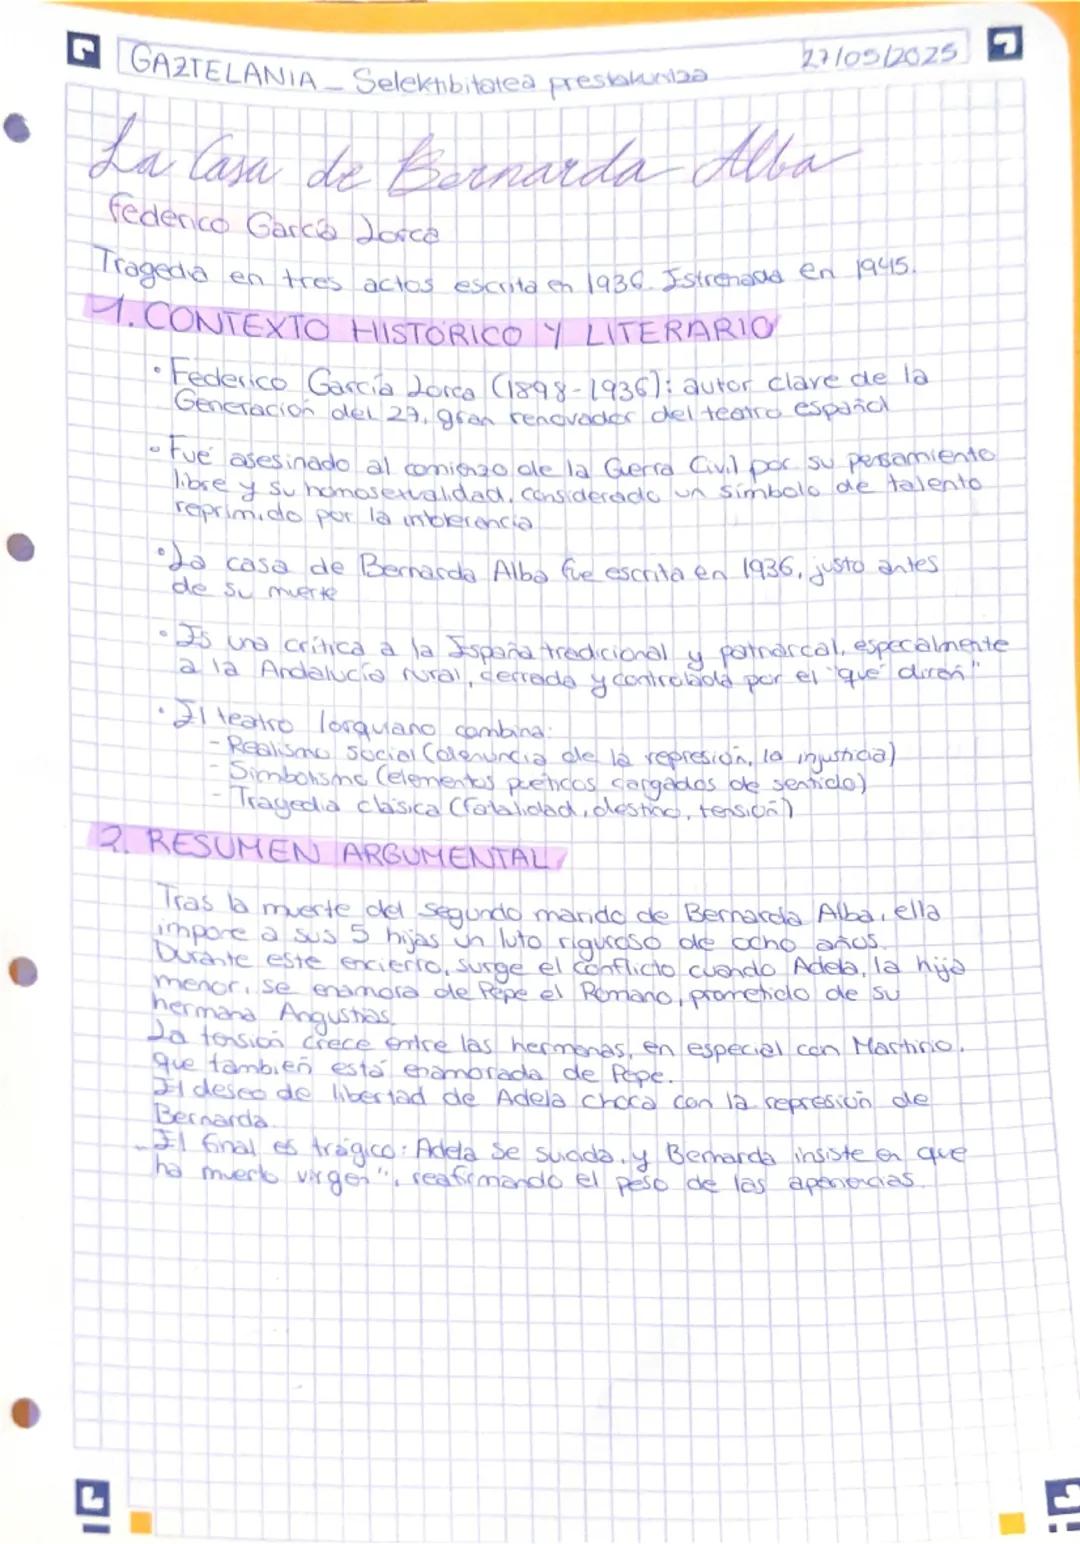 GAZTELANIA - Selektibitatea prestakuntza
27/05/2025
La Casa de Bernarda Alba
Federico García Lorca
Tragedia en tres actos escrita en 1936. Estrenada en 1945.
1. CONTEXTO HISTÓRICO Y LITERARIO
• Federico García Lorca (1898-1936): autor clave de la
Generación del 27, gran renovador del teatro español
• Fué asesinado al comienzo de la Guerra Civil por su pensamiento
libre y su homosexualidad, considerado un símbolo de talento
reprimido por la intolerencia
• La casa de Bernarda Alba fue escrita en 1936, justo antes
de su muerte
• Es una crítica a la España tradicional y patriarcal, especialmente
a la Andalucía rural, cerrada y controlada por el "qué dirán"
• El teatro lorquiano combina:
- Realismo social (denuncia de la represión, la injusticia)
- Simbolismo (elementos poéticos cargados de sentido)
- Tragedia clásica (fatalidad, destino, tensión)
2. RESUMEN ARGUMENTAL
Tras la muerte del segundo marido de Bernarda Alba, ella
impone a sus 5 hijas un luto riguroso de ocho años.
Durante este encierro, surge el conflicto cuando Adela, la hija
menor, se enamora de Pepe el Romano, prometido de su
hermana Angustias.
La tensión crece entre las hermanas, en especial con Martirio,
que también está enamorada de Pepe.
El deseo de libertad de Adela choca con la represión de
Bernarda.
- El final es trágico: Adela se suicida, y Bernarda insiste en que
ha muerto virgen", reafirmando el peso de las apariencias.